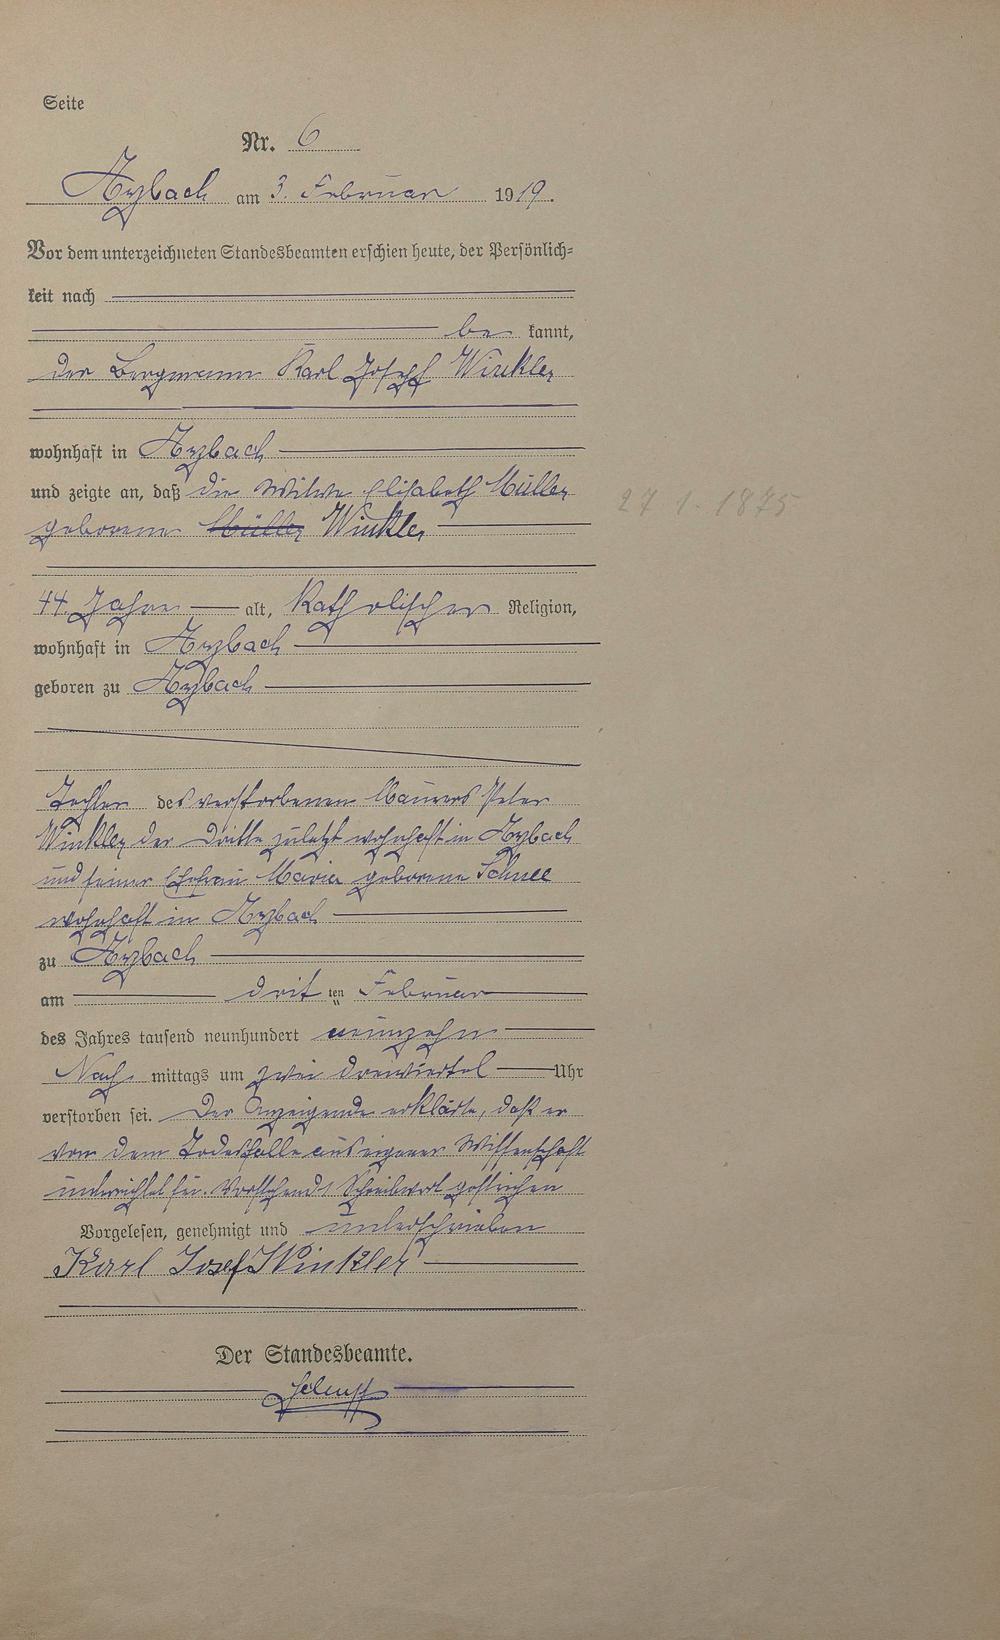 Seite
Nr. 6
Arzbach am 3. Februar 1919.
Vor dem unterzeichneten Standesbeamten erschien heute, der Persönlich=
keit nach
be kannt,
der Bergmann Karl Joseph Winkler
wohnhaft in Arzbach
und zeigte an, daß die Witwe Elisabeth Müller
27 1. 1875
geborene Müller Winkler
44 Jahre alt, Katholischer Religion,
wohnhaft in Arzbach
geboren zu Arzbach
Tochter des verstorbenen Maurers Peter
Winkler der Dritte zuletzt wohnhaft in Arzbach
und seiner Ehefrau Maria geborene Schnee
wohnhaft in Arzbach
zu Arzbach
am drit ten Februar
des Jahres tausend neunhundert neunzehn
Nach mittags um zwei dreiviertel Uhr
verstorben sei. Der Anzeigende erklärte, daß er
von dem Todesfalle aus eigener Wissenschaft
unterrichtet sei. Vorstehend 1 gestrichen
Vorgelesen, genehmigt und unterschrieben
Karl Josef Winkler
Der Standesbeamte.